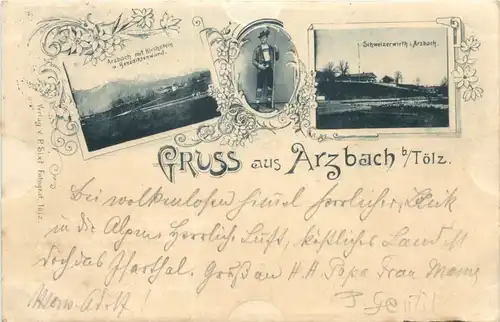 Arzbach mit Kirchstein
u. Benediktenwand.
Schweizerwirth i. Arzbach.
Verlag v. P. Sixt Fotograf. Tölz.
Gruss aus Arzbach b/Tölz.
Bei wolkenlosen Himel herrlicher Blick
in die Alpen, Herrliche Luft, köstliches Land ist
doch das Isarthal. Grüß an H. H. Papa Frau Mama
Adolf!